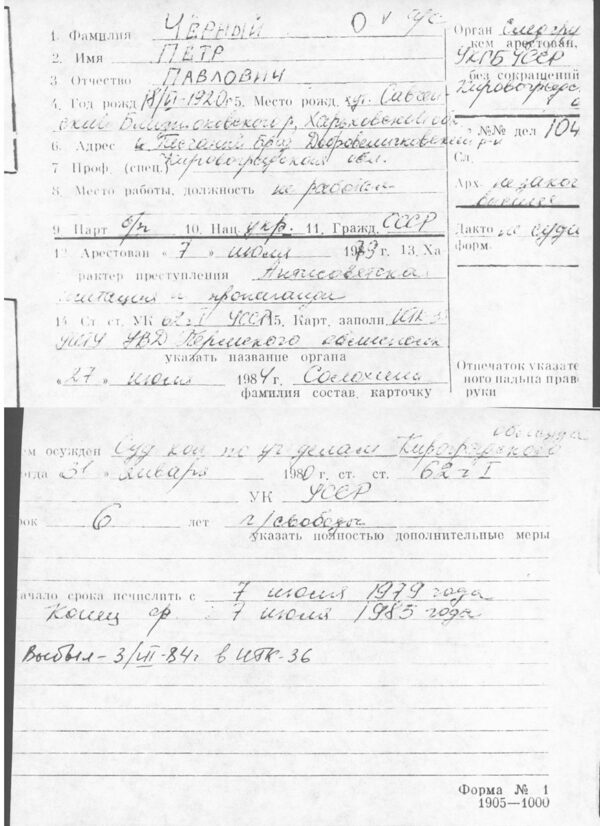 1. Фамилия ЧЁРНЫЙ
2. Имя ПЁТР
3. Отчество ПАВЛОВИЧ
4. Год рожд. 1920 г. 5. Место рожд. хут. Савсон
ский Близнюковского р, Харьковской обл
6. Адрес с Песчаный Брод Добровеличковского р-н
7 Проф. (спец.) Кировоградской обл.
8. Место работы, должность не работал
9. Парт б/п 10. Нац. укр. 11. Гражд. СССР
12 Арестован « 7 » июля 1979 г. 13. Ха
рактер преступления Антисоветская
агитация и пропаганда
14. Ст. ст. УК 62 ч I УССР 15. Карт. заполн. ИТК-35
УИТУ УВД Пермского облисполк
указать название органа
«27» июля 1984 г.
фамилия состав. карточку
Орган
кем арестован,
УКГБ УССР
без сокращений
Кировоградск
о
№№ дел 104
Сл.
Арх.
Дакто не суди
форм.
Отпечаток указате
ного пальца прав
руки
ем осужден Суд кол по уг делам Кировоградского облсуда
огда «31» января 1980 г. ст. ст. 62 ч I
УК УССР
рок 6 лет л/свободы
указать полностью дополнительные меры
ачало срока исчислить с 7 июля 1979 года
Конец ср. : 7 июля 1985 года
Выбыл - 3/III-84г в ИТК-36
Форма № 1
1905—1000